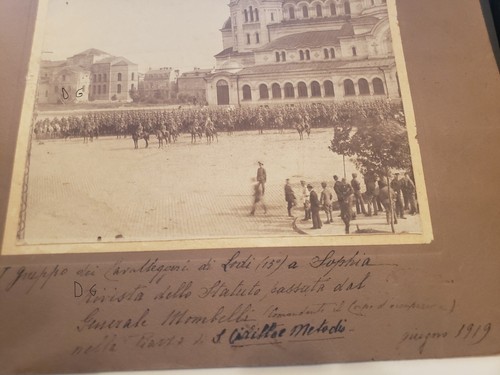 D G
I gruppo dei Cavalleggeri di Lodi (15°) a Sophia
D G
Rivista dello Statuto, passata dal
Generale Mombelli (Comandante il Corpo d'occupazione)
nella Piazza di S. Cirillo e Metodio
giugno 1919